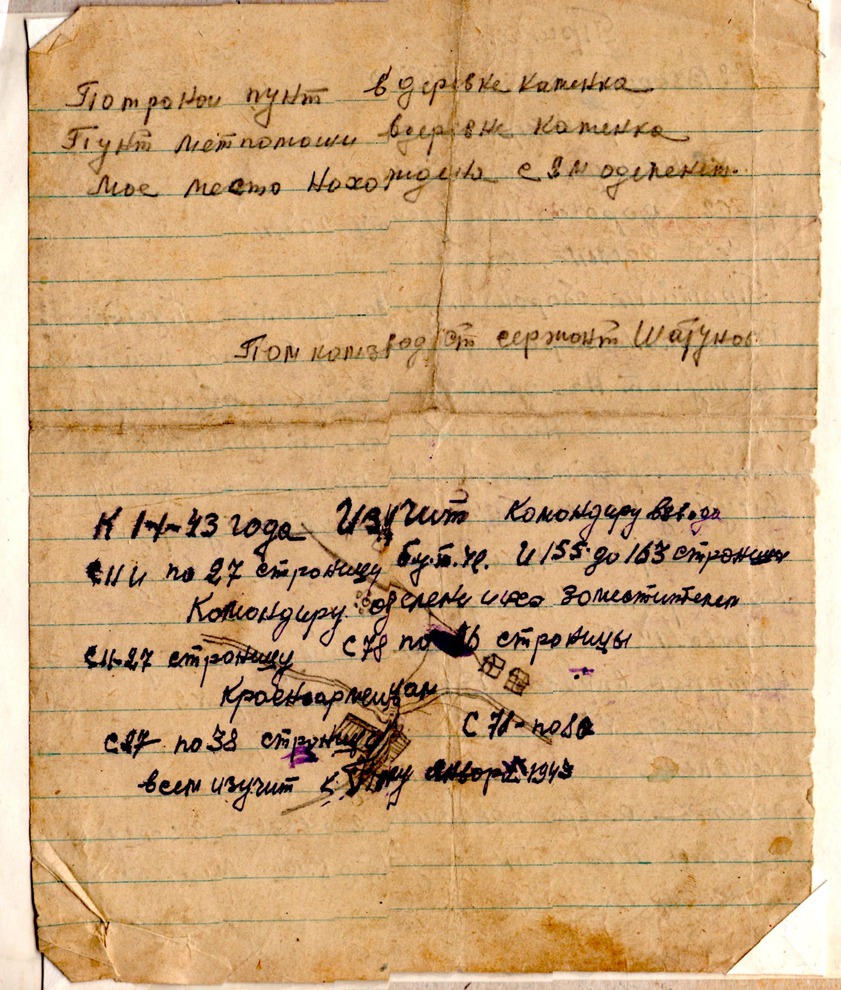 Потроной пунт в деревке каменка
Пунт метпомоши вдеревне каменка
мое место нахождена с 2м
Пом комзвод ст сержонт Шатунов
К 1-1-43 года Изучит командиру взвода
по 27 строницу бу.п.ч. и 155 до 163 строницы
Командиру зоместителем
с 11-27 строницу с 78 по строницы
Красноармейцам
с 27 по 38 строницу с 78 по 80
всем изучит к январ 1943